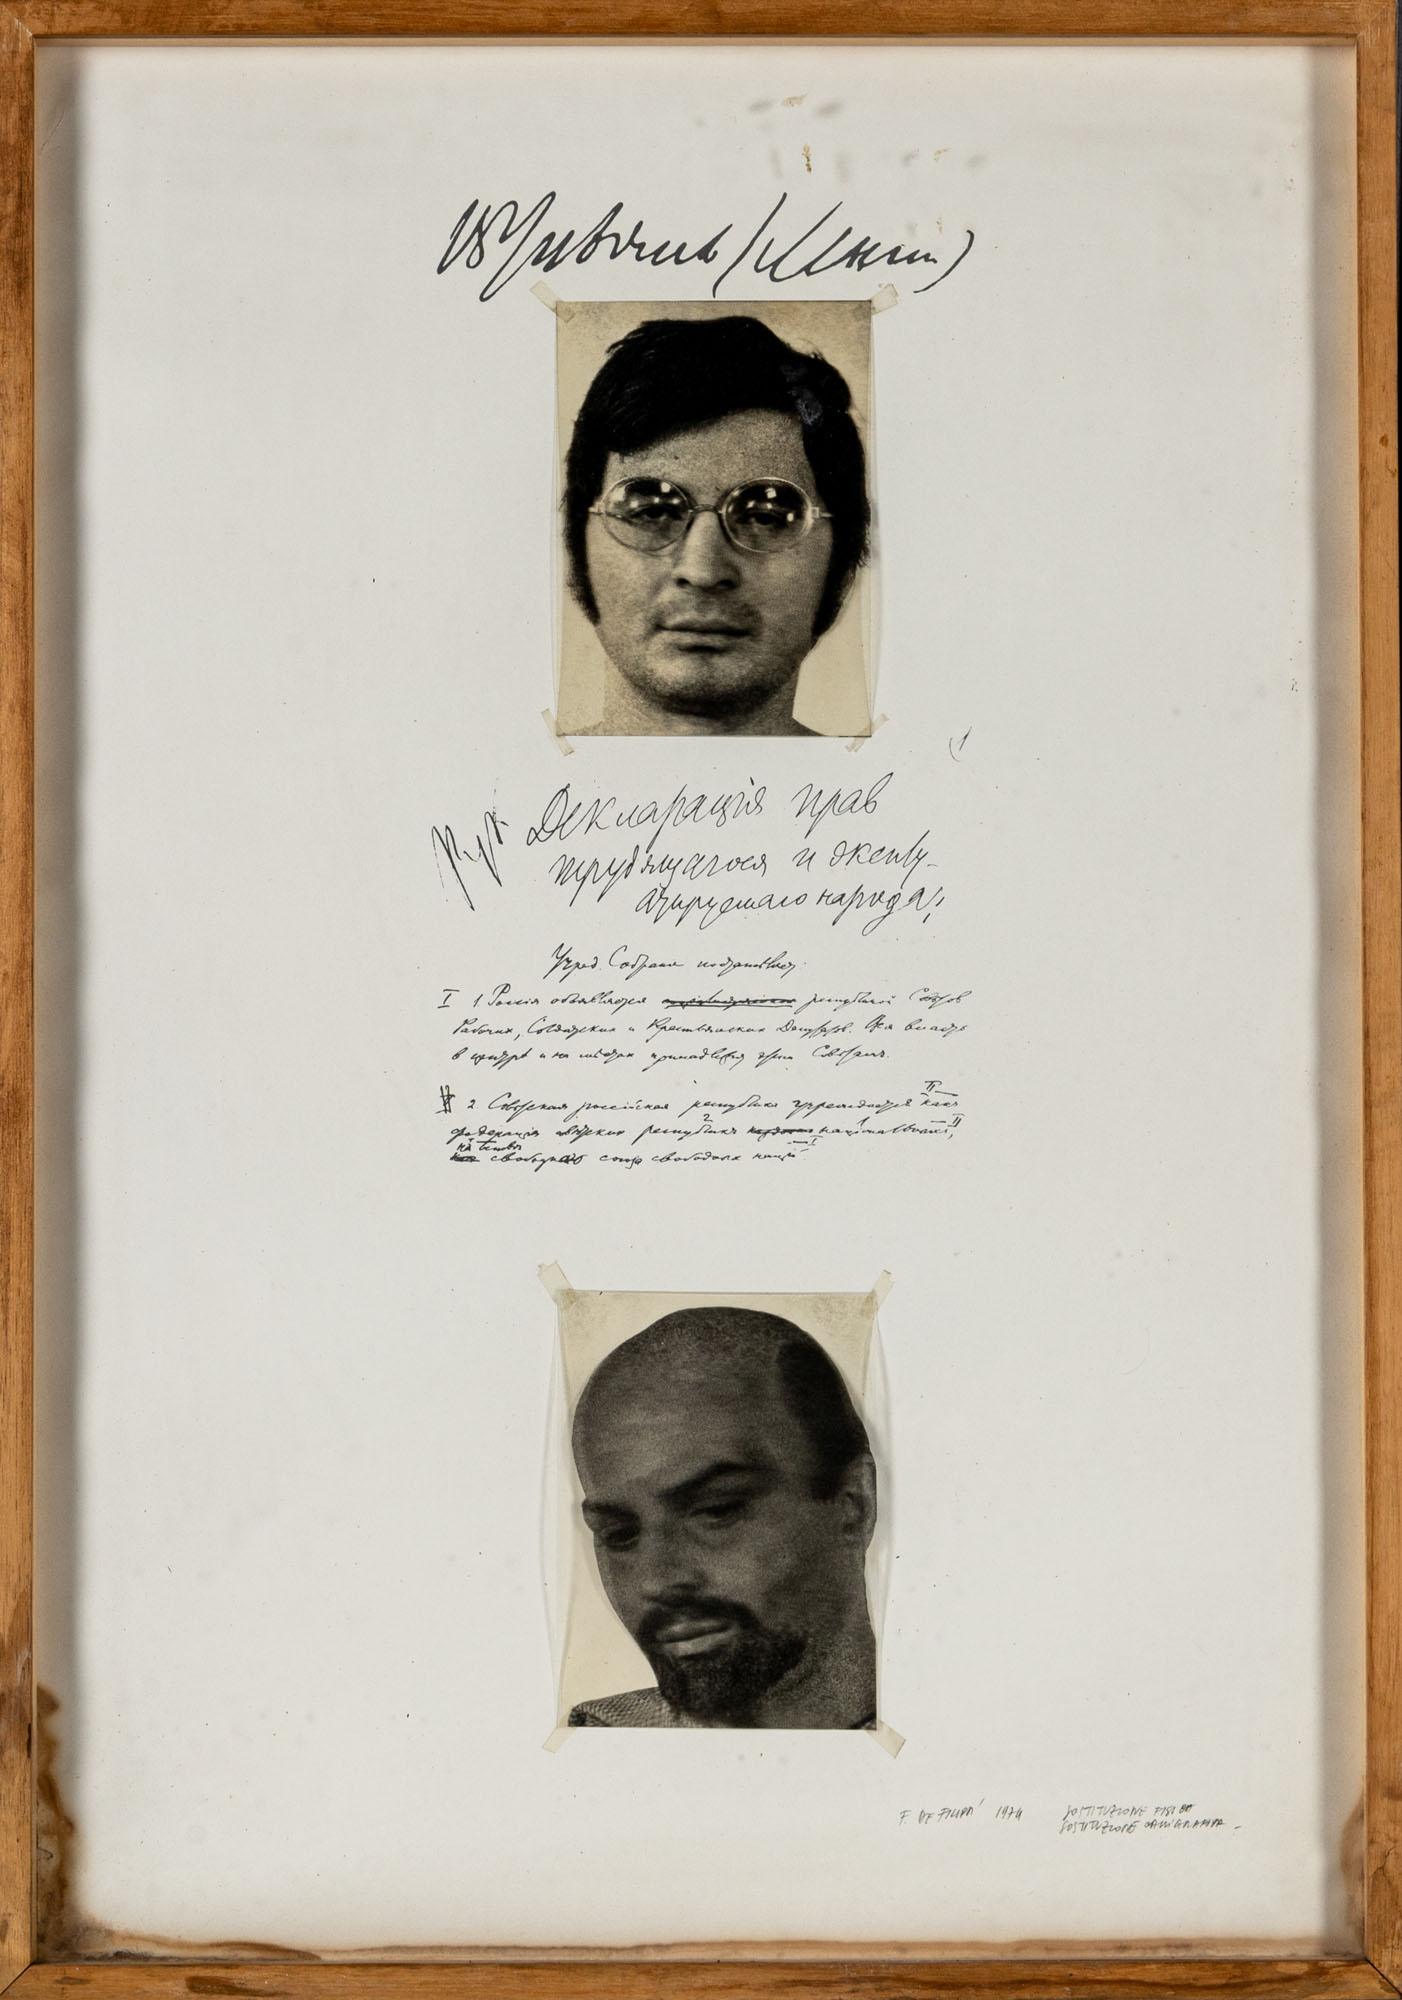 В Ульянов (Ленин)
(1
Декларація прав
трудящагося и эксплу-
атируемаго народа:
Учред. Собрание постановляет:
I 1. Россія объявляется республикой Советов
Рабочих, Солдатских и Крестьянских Депутатов. Вся власть
в центре и на местах принадлежит этим Советам.
2. Советская российская республика учреждается как II
федерация советских республик 2 национальных, 1 II
свободных союза свободных наций I
F. DE FILIPPI 1974 SOSTITUZIONE FISICA
SOSTITUZIONE CALLIGRAFICA -